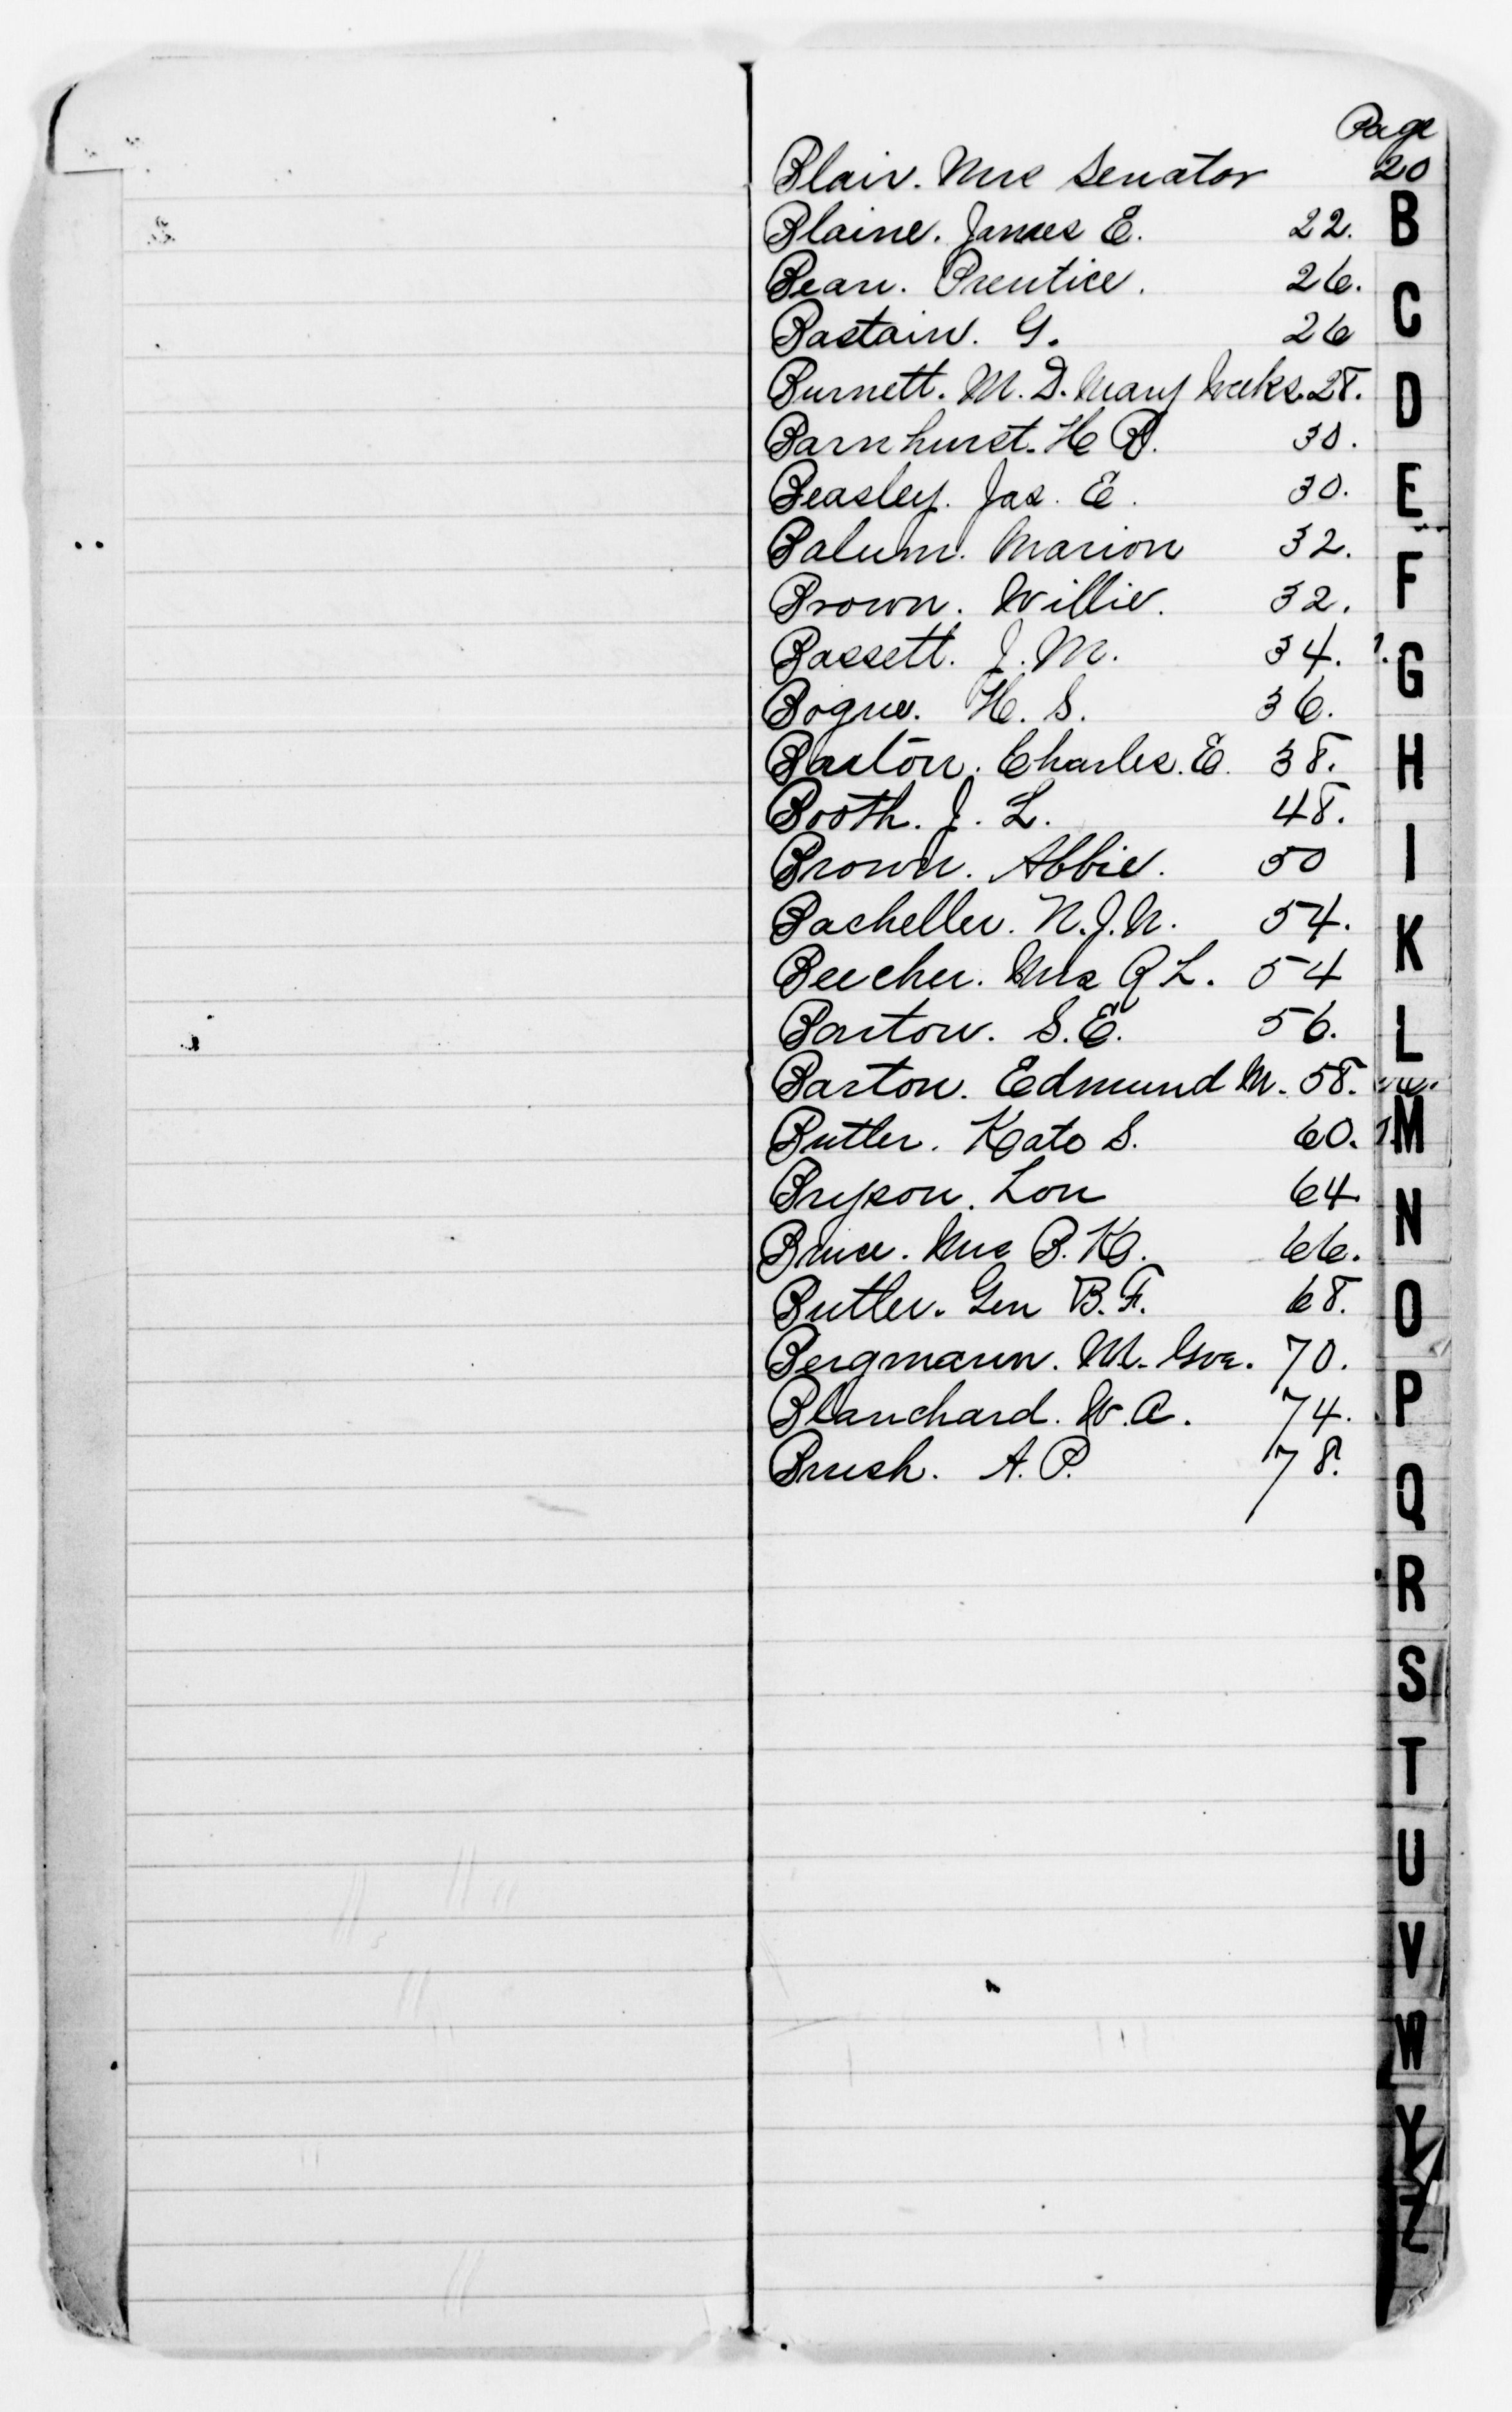 Page
Blair. Mrs Senator 20
Blaine. James E. 22.
Bean. Prentice. 26.
Bastain. G. 26
Burnett. M. D. Mary Weeks. 28.
Barnhurst. H R. 30.
Beasley. Jas. E. 30.
Balum. Marion 32.
Brown. Willie. 32.
Bassett. J. M. 34.
Bogue. H. S. 36.
Barton. Charles. E. 38.
Booth. J. L. 48.
Brown. Abbie. 50
Bacheller. N. J. N. 54.
Beecher. Mrs R L. 54
Barton. S. E. 56.
Barton. Edmund M. 58.
Butler. Kate S. 60.
Bryson. Lon 64.
Bruce. Mrs B. K. 66.
Butler. Gen B. F. 68.
Bergmann. M. 70.
Blanchard. W. A. 74.
Brush. A. P. 78.
B
C
D
E
F
G
H
I
K
L
M
N
O
P
Q
R
S
T
U
V
W
Y
Z